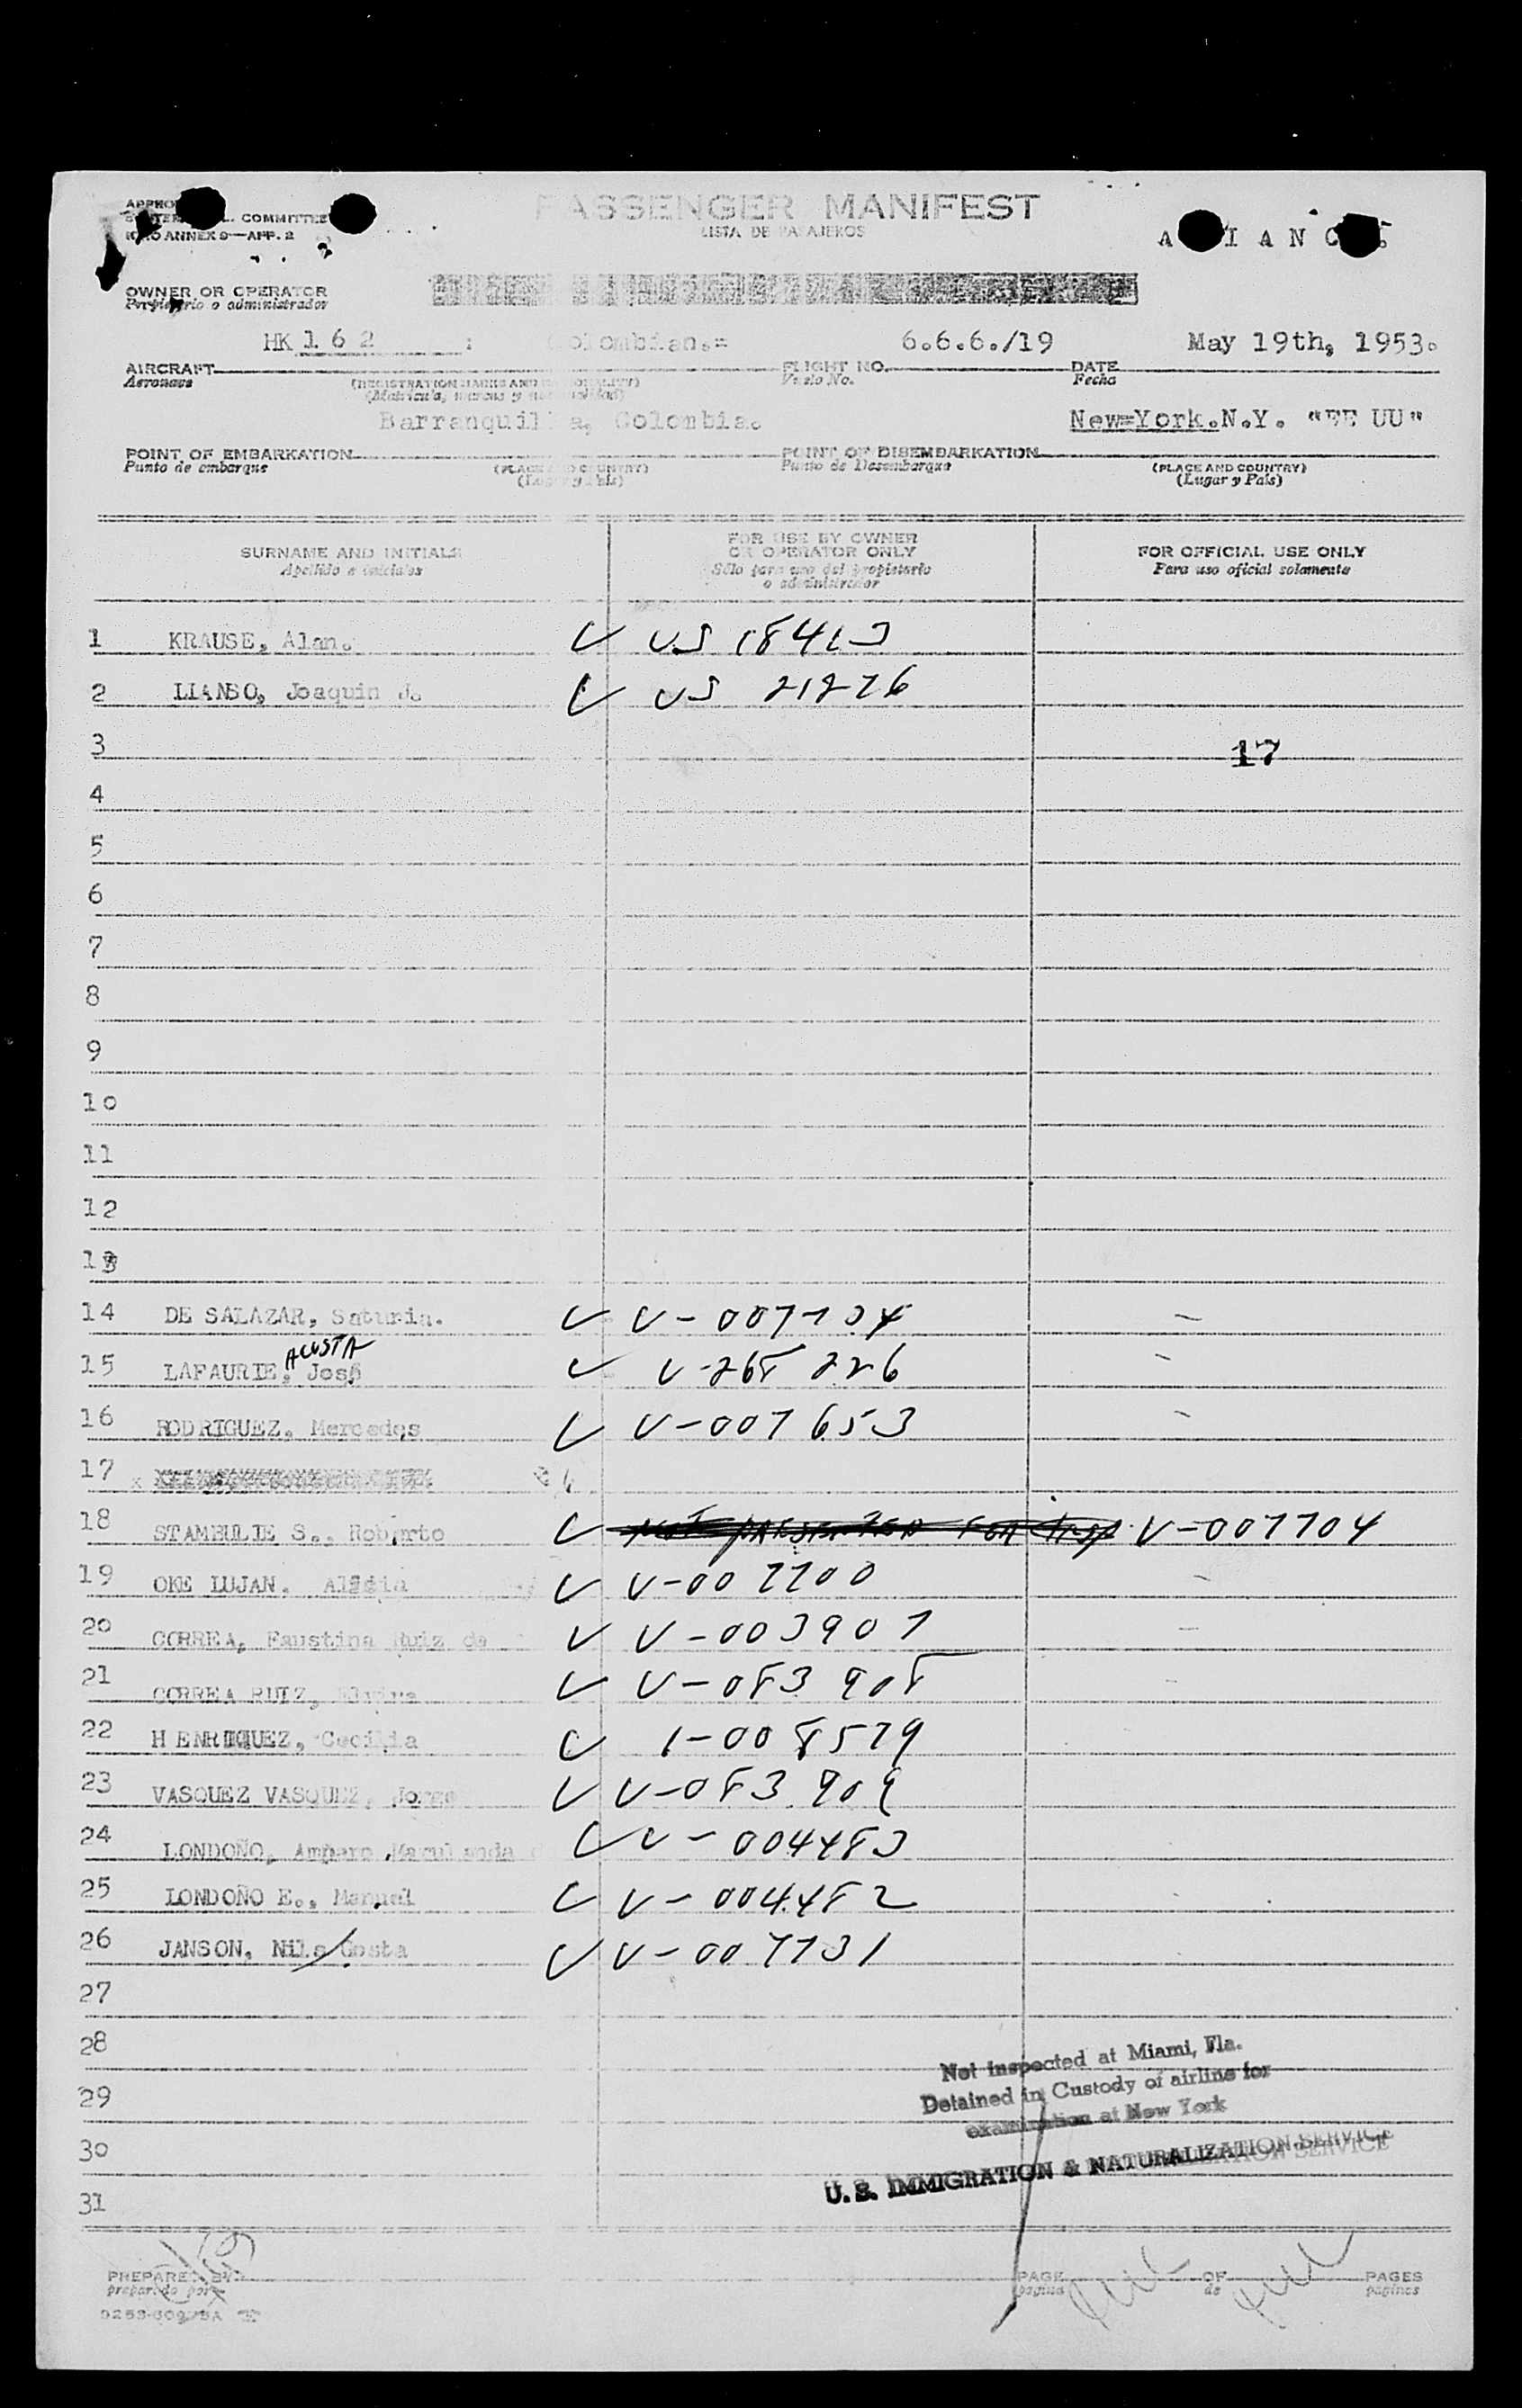 PASSENGER MANIFEST
LISTA DE PASAJEROS
COMMITTEE
ANNEX 9—APP. 2
OWNER OR OPERATOR
Propietario o administrador
HK 162 : Colombian.=
6.6.6./19
May 19th, 1953.
AIRCRAFT
Aeronave
(REGISTRATION MARKS AND NATIONALITY)
FLIGHT NO.
Vuelo No.
DATE
Fecha
Barranquilla, Colombia.
New=York.N.Y. "EE UU"
POINT OF EMBARKATION
Punto de embarque
(PLACE AND COUNTRY)
(Lugar y País)
POINT OF DISEMBARKATION
Punto de Desembarque
(PLACE AND COUNTRY)
(Lugar y País)
SURNAME AND INITIALS
Apellido e iniciales
FOR USE BY OWNER
OR OPERATOR ONLY
Sólo para uso del propietario
o administrador
FOR OFFICIAL USE ONLY
Para uso oficial solamente
1 KRAUSE, Alan. US 18413
2 LIANSO, Joaquin J. US 21276
3 17
4
5
6
7
8
9
10
11
12
13
14 DE SALAZAR, Saturia. V-007704
ACOSTA
15 LAFAURIE, José V-268 226
16 RODRIGUEZ, Mercedes V-007653
17
18 STAMBULIE S., Roberto V-007704
19 OKE LUJAN. Alicia V-007700
20 CORREA, Faustina Ruiz de V-003907
21 CORREA RUIZ, V-083 908
22 HENRIQUEZ, Cecilia 1-008579
23 VASQUEZ VASQUEZ, Jorge V-083 909
24 LONDOÑO, Amparo Marulanda V-004483
25 LONDOÑO E., Manuel V-004482
26 JANSON, Nils Gosta V-007731
27
28
29
30
31
Not inspected at Miami, Fla.
Detained in Custody of airline for
examination at New York
U. S. IMMIGRATION & NATURALIZATION SERVICE
PREPARED BY
preparado por
PAGE
pagina
OF
de
PAGES
paginas